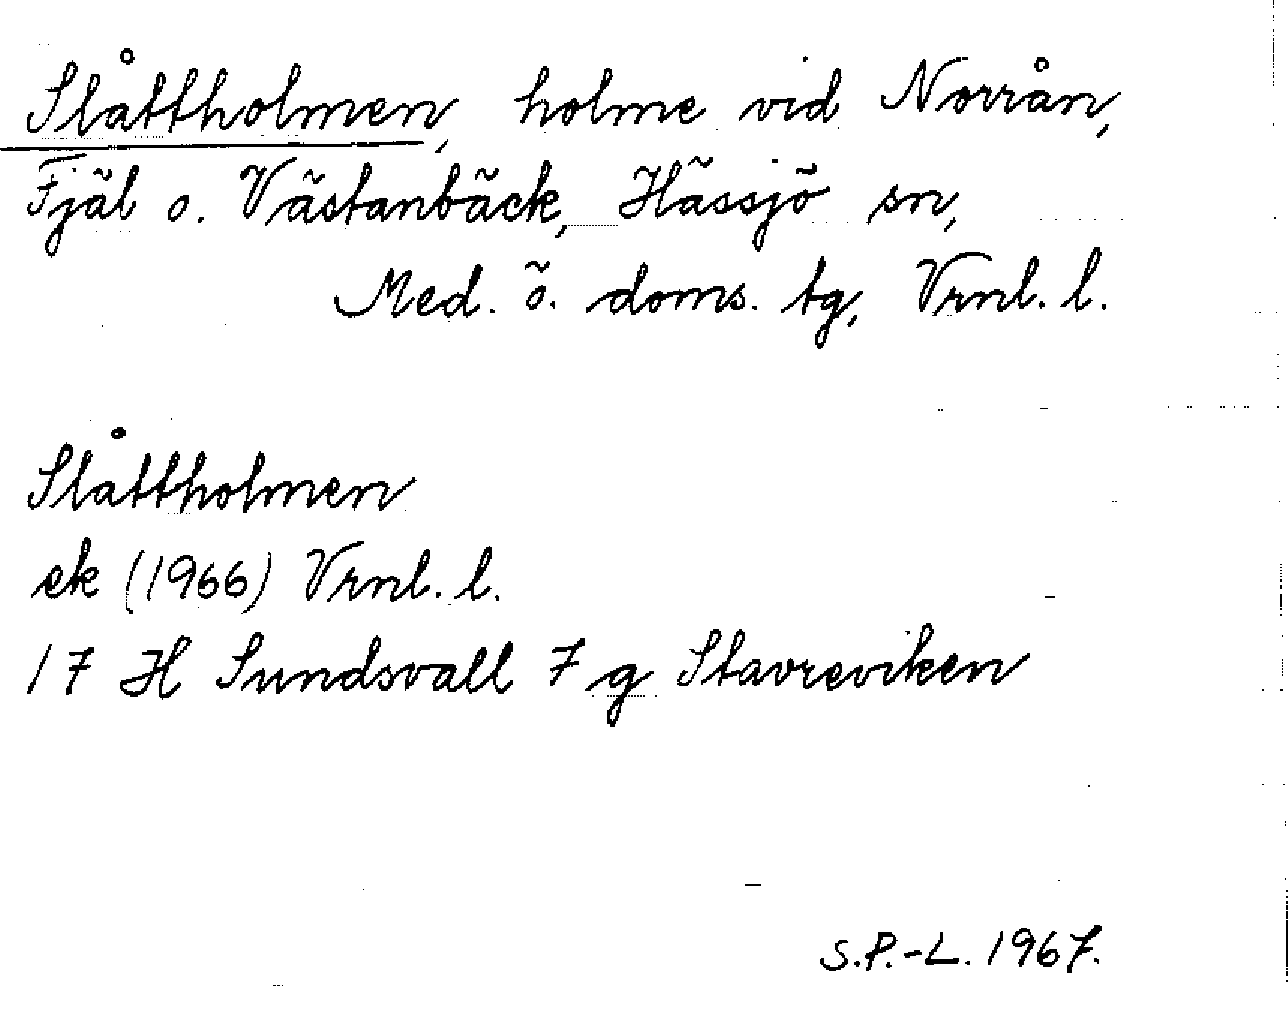 Slåttholmen, holme vid Norrån,
Fjäl o. Västanbäck, Hässjö sn,
Med. ö. doms. tg, Vrnl. l.
Slåttholmen
ek (1966) Vrnl. l.
17 H Sundsvall 7 g Stavreviken
S.P.-L. 1967.